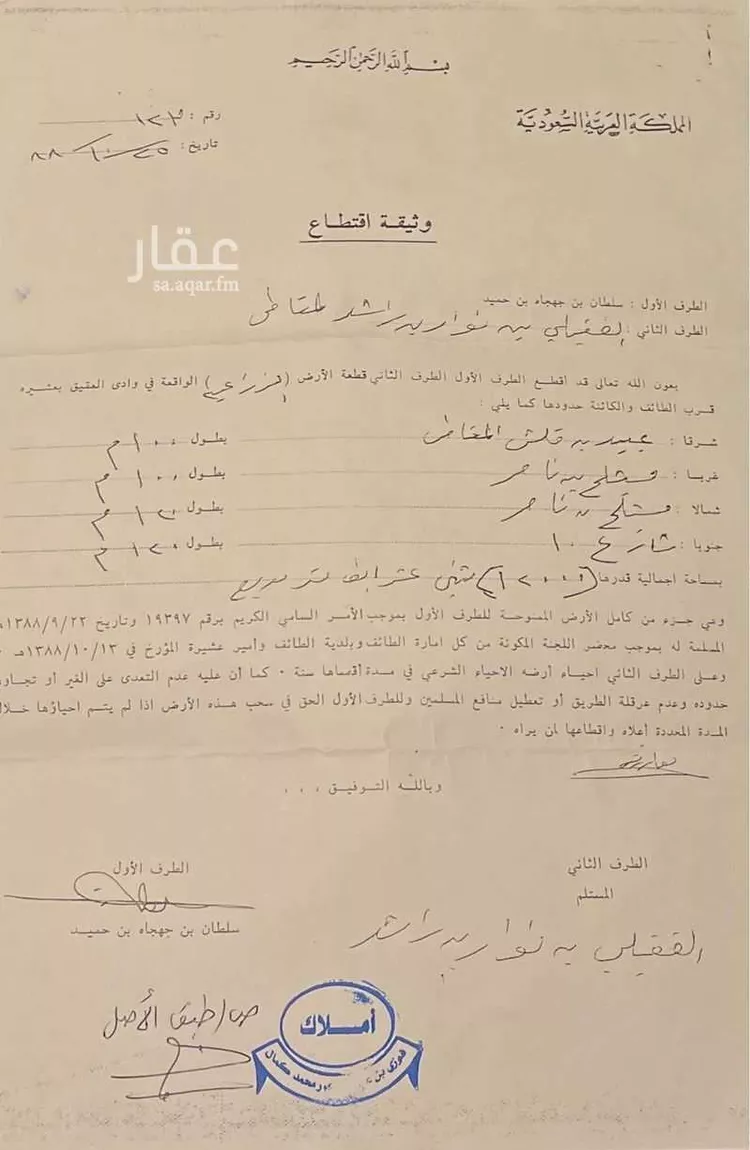 بسم الله الرحمن الرحيم
المملكة العربية السعودية
رقم :
تاريخ : ٢٥/١٠/٨٨
وثيقة اقتطاع
عقار
sa.aqar.fm
الطرف الأول : سلطان بن جهجاه بن حميد
الطرف الثاني : بن نوار بن راشد المقاطي
بعون الله تعالى قد اقطع الطرف الأول الطرف الثاني قطعة الأرض (الزراعي) الواقعة في وادى العقيق بعشيره
قرب الطائف والكائنة حدودها كما يلي :
شرقا : عبيد بن قلش المقاطي بطول ١٠٠ م
غربا : مشلح بن ناصر بطول ١٠٠ م
شمالا : مشلح بن ناصر بطول ١٢٠ م
جنوبا : شارع ع ١٠ بطول ١٢٠ م
بساحة اجمالية قدرها (١٢٠٠٠) عشر الف متر مربع
وهي جزء من كامل الأرض الممنوحة للطرف الأول بموجب الأمر السامي الكريم برقم ١٩٣٩٧ وتاريخ ١٣٨٨/٩/٢٢هـ
المسلمة له بموجب محضر اللجنة المكونة من كل امارة الطائف وبلدية الطائف وأمير عشيرة المؤرخ في ١٣٨٨/١٠/١٣هـ ٠
وعلى الطرف الثاني احياء أرضه الاحياء الشرعي في مدة أقصاها سنة ٠ كما أن عليه عدم التعدى على الغير أو تجاوز
حدوده وعدم عرقلة الطريق أو تعطيل منافع المسلمين وللطرف الأول الحق في سحب هذه الأرض اذا لم يتم احياؤها خلال
المدة المحددة أعلاه واقطاعها لمن يراه ٠
وبالله التوفيق ،،،
الطرف الثاني
المستلم
بن نوار بن راشد
الطرف الأول
سلطان بن جهجاه بن حميد
ص/طبق الأصل
أملاك
فوزي بن محمد كمال